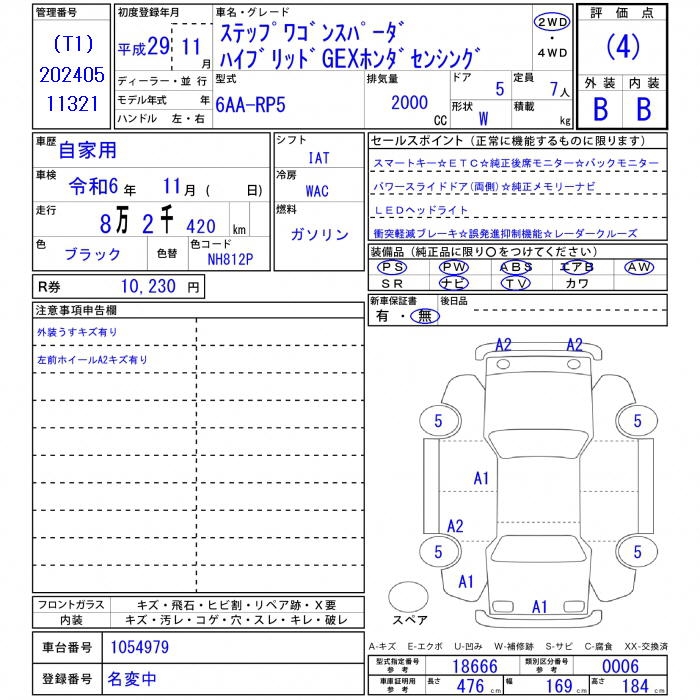 管理番号
(T1)
202405
11321
初度登録年月
平成29 11月
車名・グレード
ステップワゴンスパーダ
ハイブリッドGEXホンダセンシング
2WD
・
4WD
評価点
(4)
外装 内装
B B
ディーラー・並行
モデル年式 年
ハンドル 左・右
型式
6AA-RP5
排気量
2000
CC
ドア
5
定員
7人
形状
W
積載
kg
車歴
自家用
車検
令和6年 11月( 日)
走行
8万2千420 km
色
ブラック
色替
色コード
NH812P
シフト
IAT
冷房
WAC
燃料
ガソリン
セールスポイント(正常に機能するものに限ります)
スマートキー☆ETC☆純正後席モニター☆バックモニター
パワースライドドア(両側)☆純正メモリーナビ
LEDヘッドライト
衝突軽減ブレーキ☆誤発進抑制機能☆レーダークルーズ
装備品(純正品に限り○をつけてください)
PS PW ABS エアB AW
SR ナビ TV カワ
R券 10,230円
新車保証書
有・無
後日品
注意事項申告欄
外装うすキズ有り
左前ホイールA2キズ有り
A2 A2
5 5
A1
A2
5 5
A1
A1
スペア
フロントガラス キズ・飛石・ヒビ割・リペア跡・X要
内装 キズ・汚レ・コゲ・穴・スレ・キレ・破レ
車台番号 1054979
登録番号 名変中
A-キズ E-エクボ U-凹み W-補修跡 S-サビ C-腐食 XX-交換済
型式指定番号
参考
18666
類別区分番号
参考
0006
車庫証明用
参考
長さ 476cm 幅 169cm 高さ 184cm